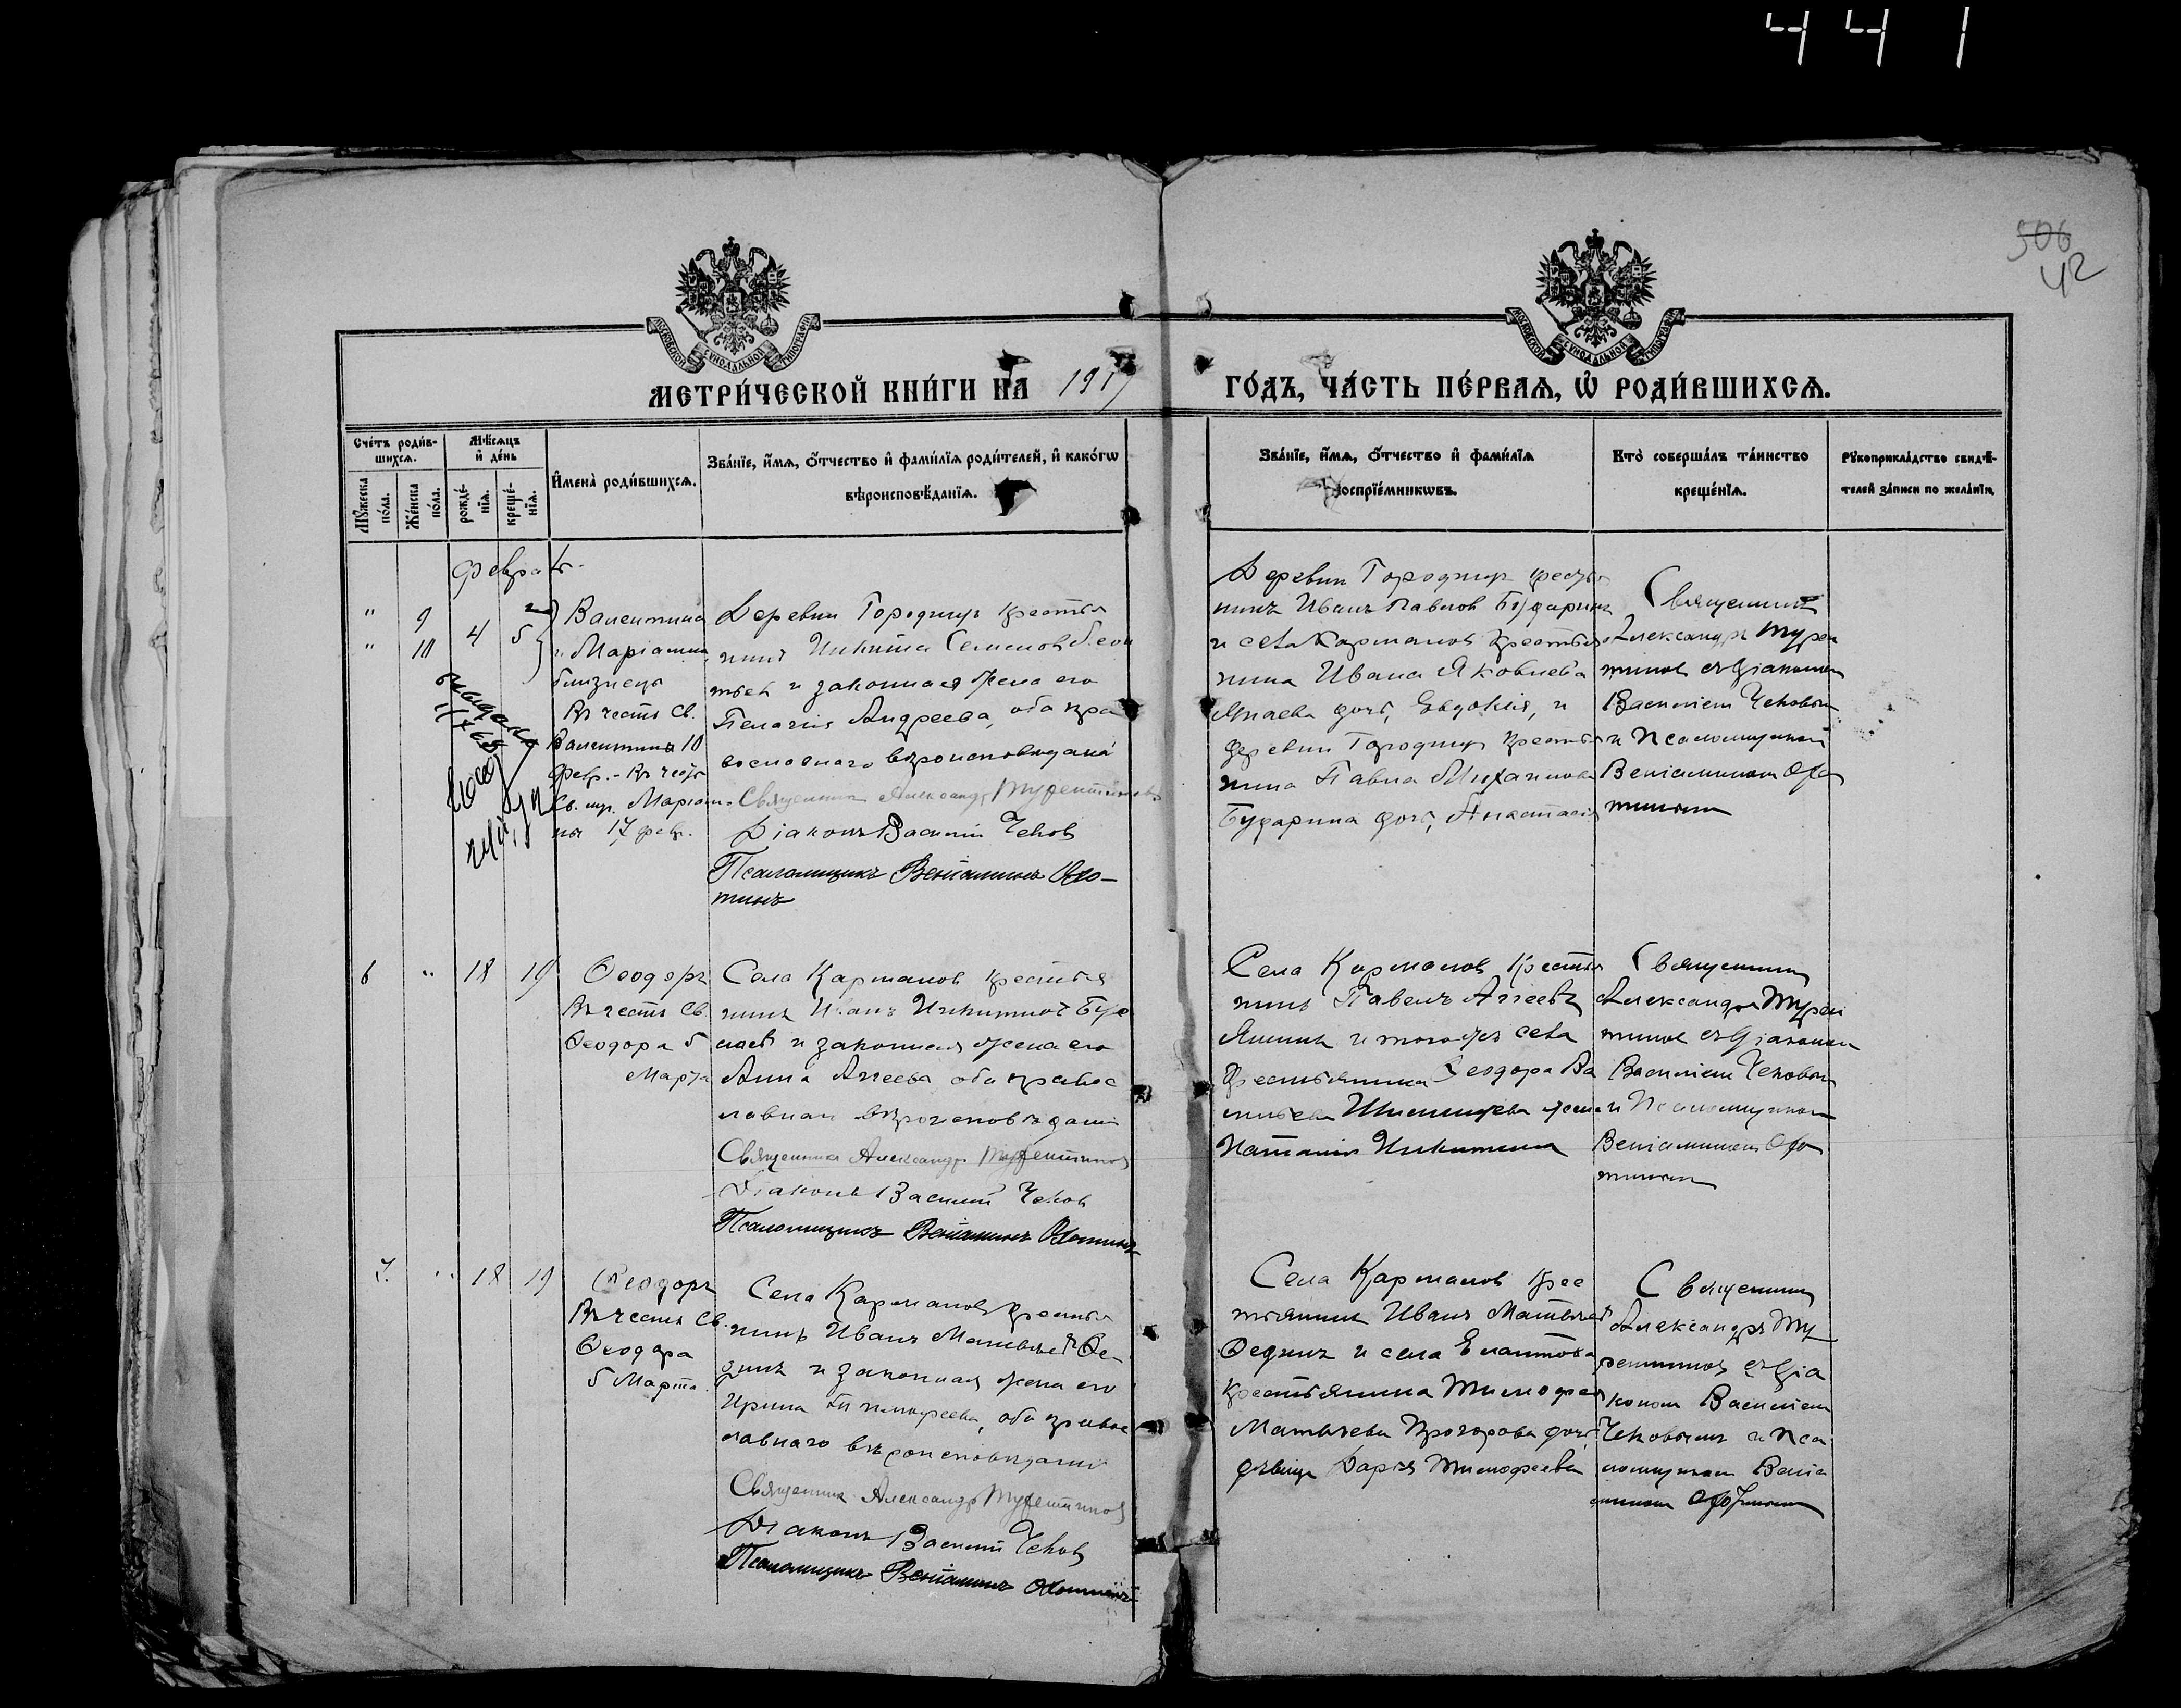 441
506
42
МОСКОВСКОЙ СУНОДАЛЬНОЙ ТИПОГРАФІИ
МОСКОВСКОЙ СУНОДАЛЬНОЙ ТИПОГРАФІИ
МЕТРИ́ЧЕСКОЙ КНИ́ГИ НА 1917
ГО́ДЪ, ЧА́СТЬ ПЕ́РВАѦ, Ѡ҆ РОДИ́ВШИХСѦ.
Сче́тъ роди́в-
шихсѧ.
Мꙋ́жеска
по́ла.
Же́нска
по́ла.
Мѣ́сѧцъ
и҆ де́нь
рожде́-
нїѧ.
креще́-
нїѧ.
И҆мена̀ роди́вшихсѧ.
Зва́нїе, и҆́мѧ, ѻ҆́тчество и҆ фами́лїѧ роди́телей, и҆ како́гѡ
вѣроисповѣ́данїѧ.
Зва́нїе, и҆́мѧ, ѻ҆́тчество и҆ фами́лїѧ
воспрїе́мникѡвъ.
Кто̀ соверша́лъ та́инство
креще́нїѧ.
Рꙋкоприкла́дство свидѣ́-
телей за́писи по жела́нїю.
Февраль
" 9 4 5
" 10
Валентина
и Маріамна
близнецы
Въ честь Св.
Валентины 10
Февр. - Въ честь
Св. мц. Маріам
ны 17 февр.
Деревни Городищъ крестья
нинъ Никита Семеновъ Леон
тьевъ и законная жена его
Пелагія Андреева, оба пра
вославнаго вѣроисповѣданія
Священникъ Александръ Турентиновъ
Діаконъ Василій Чеховъ
Псаломщикъ Веніаминъ Охо-
тинъ
Деревни Городищъ крестья
нинъ Иванъ Павловъ Бударинъ
и села Кармановъ крестья
нина Ивана Яковлева
дочь, Евдокія, и
деревни Городищъ крестья
нина Павла Михаилова
Бударина дочь, Анастасія
Священникъ
Александръ Турен
тиновъ съ діакономъ
Василіемъ Чеховымъ
и Псаломщикомъ
Веніаминомъ Охо
тинымъ
6 " 18 19
Ѳеодоръ
Въ честь Св.
Ѳеодора 5
Марта
Села Кармановъ крестья
нинъ Иванъ Никитинъ
и законная жена его
Анна Агеева оба правос
лавнаго вѣроисповѣданія
Священникъ Александръ Турентиновъ
Діаконъ Василій Чеховъ
Псаломщикъ Веніаминъ Охотинъ
Села Кармановъ крестья
нинъ Павелъ Агеевъ
Яшинъ и того же села
крестьянина Ѳеодора Ва
сильева жена
Наталія Никитина
Священникъ
Александръ Турен
тиновъ съ діакономъ
Василіемъ Чеховымъ
и Псаломщикомъ
Веніаминомъ Охо
тинымъ
7. " 18 19
Ѳеодоръ
Въ честь Св.
Ѳеодора
5 Марта.
Села Кармановъ крестья
нинъ Иванъ Матвѣевъ Ѳе-
динъ и законная жена его
Ирина Тимофеева, оба правос
лавнаго вѣроисповѣданія
Священникъ Александръ Турентиновъ
Діаконъ Василій Чеховъ
Псаломщикъ Веніаминъ Охотинъ
Села Кармановъ крес
тьянинъ Иванъ Матвѣевъ
Ѳединъ и села
крестьянина Тимофея
Матвѣева Прохорова дочь,
дѣвица Дарья Тимофеева
Священникъ
Александръ Ту
рентиновъ съ діа
кономъ Василіемъ
Чеховымъ и Пса
ломщикомъ Веніа
миномъ Охотинымъ